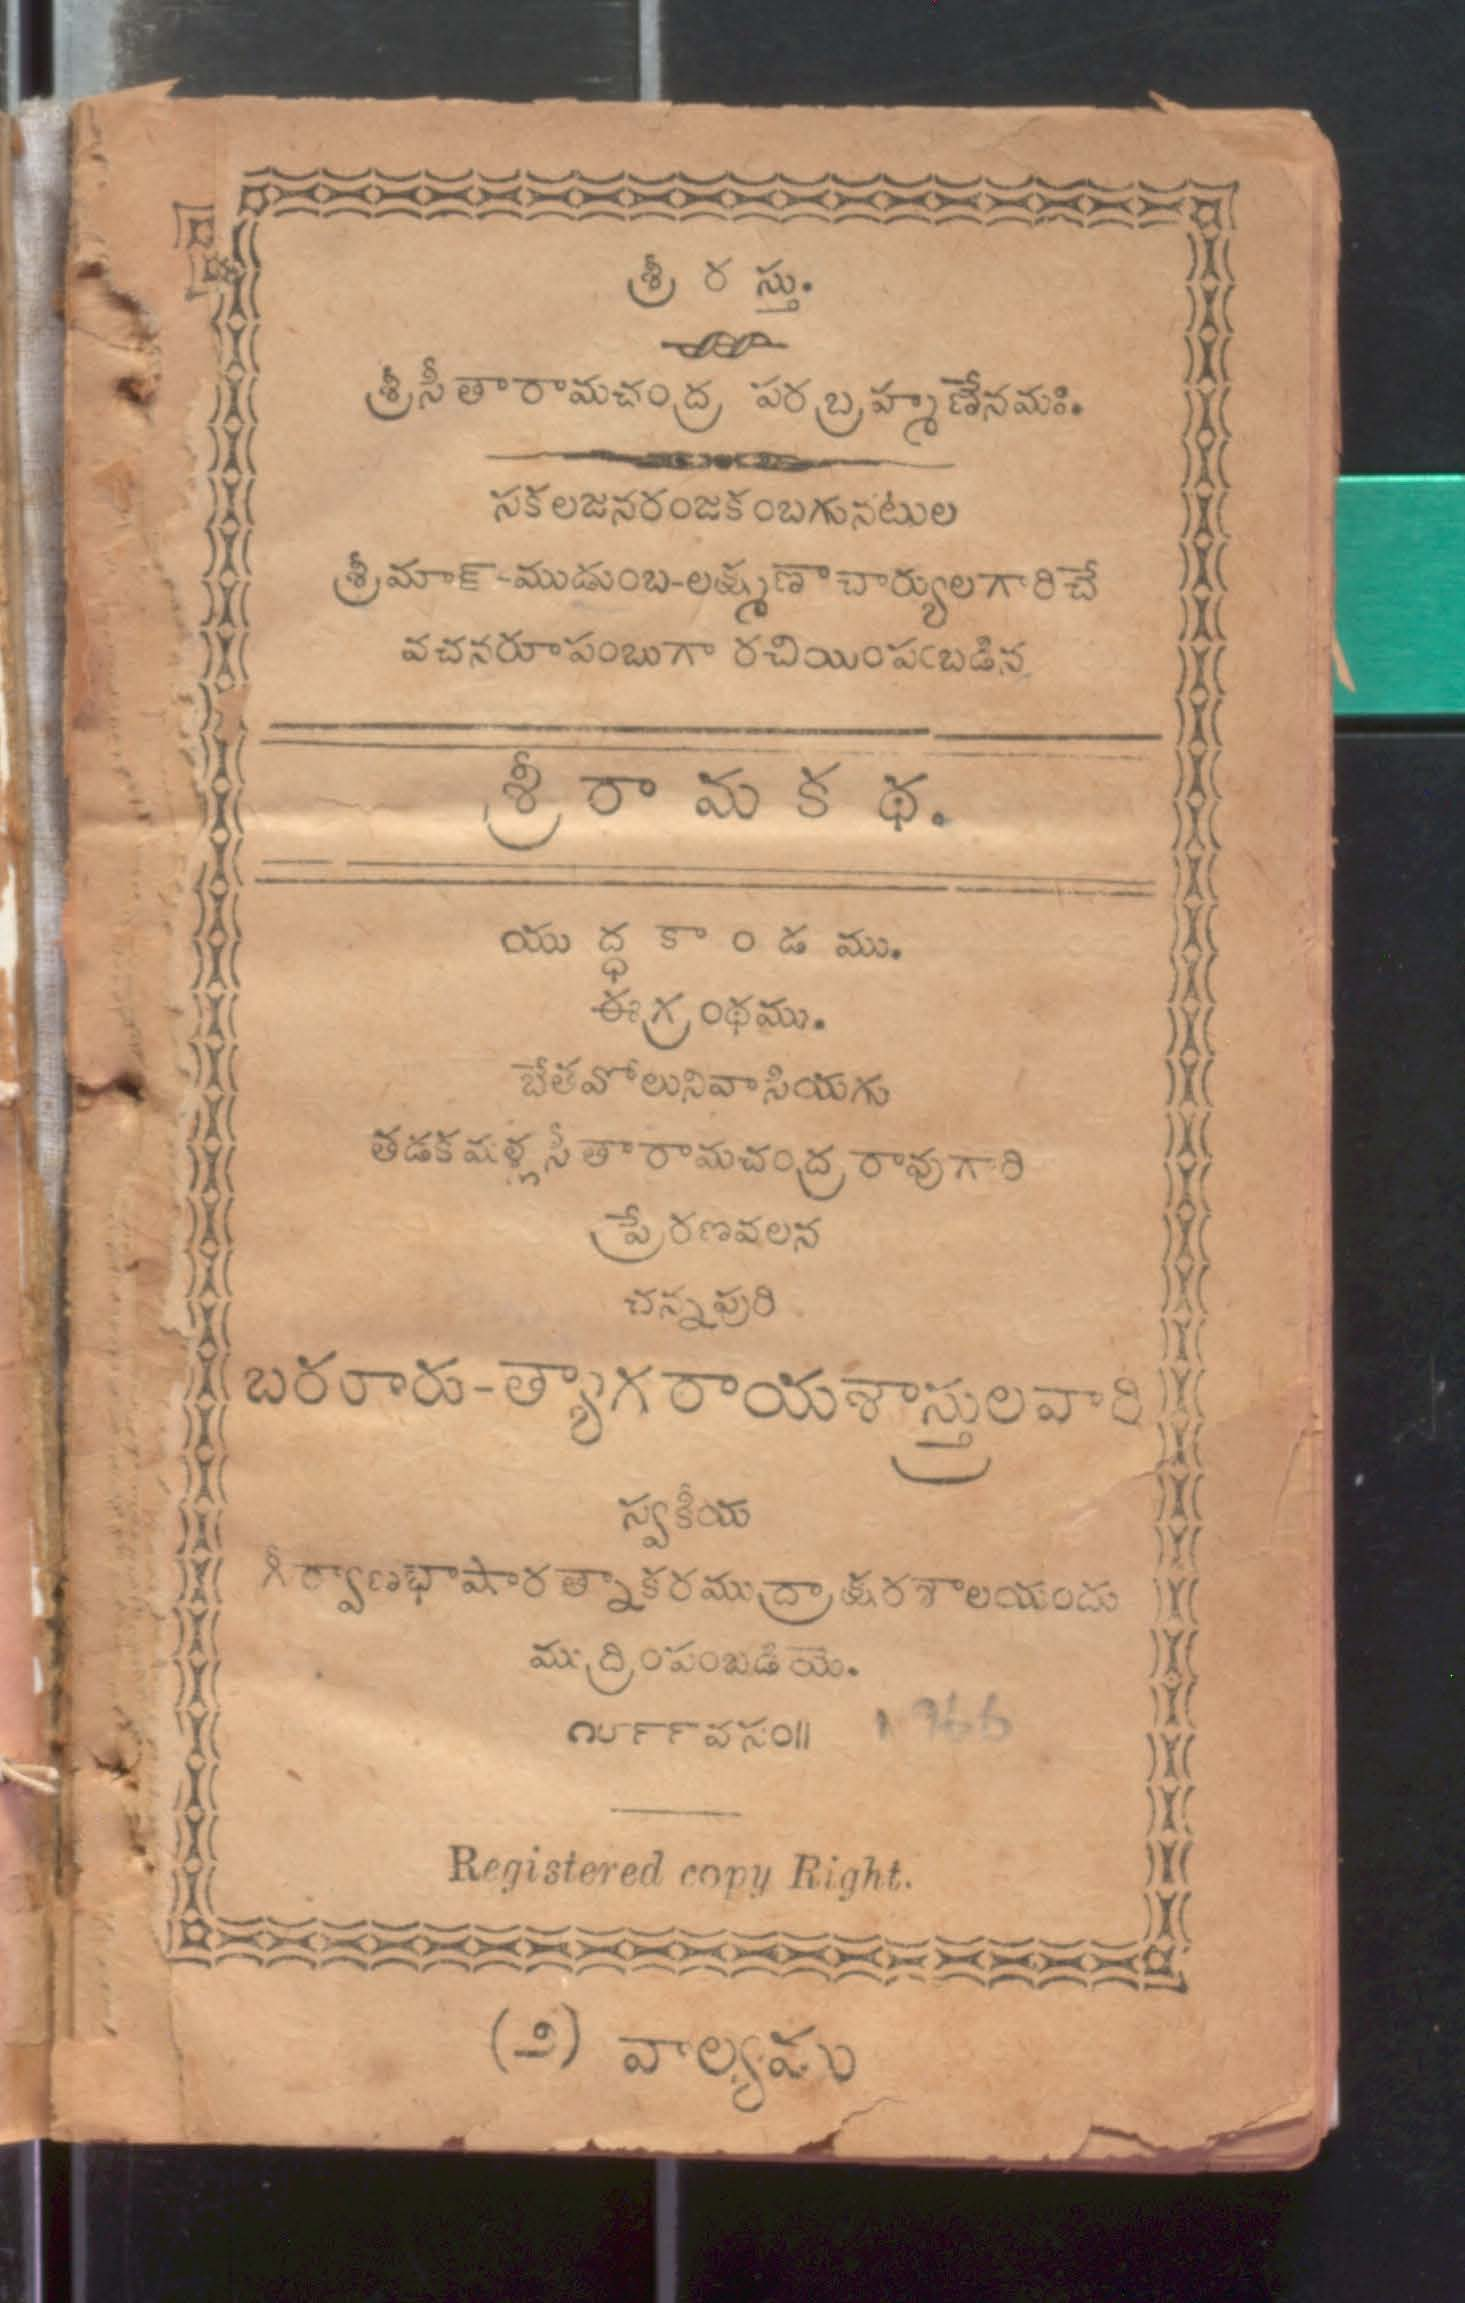 శ్రీ ర స్తు.
శ్రీసీతారామచంద్ర పరబ్రహ్మణేనమః.
సకలజనరంజకంబగునటుల
శ్రీమాన్-ముడుంబ-లక్ష్మణాచార్యులగారిచే
వచనరూపంబుగా రచియింపఁబడిన
శ్రీ రా మ క థ.
యు ద్ధ కా ం డ ము.
ఈగ్రంథము.
బేతవోలునివాసియగు
తడకమళ్లసీతారామచంద్రరావుగారి
ప్రేరణవలన
చన్నపురి
బరూరు-త్యాగరాయశాస్త్రులవారి
స్వకీయ
గీర్వాణభాషారత్నాకరముద్రాక్షరశాలయందు
ముద్రింపంబడియె.
౧౮౯౯వసం||
Registered copy Right.
(౨) వాల్యము